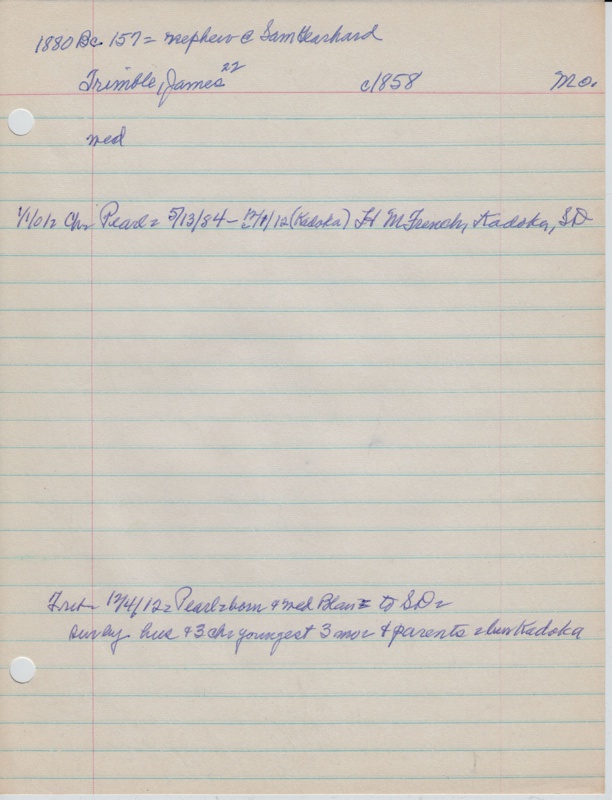 1880 Bc. 157 = nephew @ Sam Gearhard
Trimble, James 22 c1858 Mo.
wed
1/1/01= Ch= Pearl= 5/13/84 - 12/1/12 (Kadoka) H M French, Kadoka, SD
12/4/12= Pearl=born & wed Blair= to SD=
surv by hus & 3 ch= youngest 3 mo= & parents =bur Kadoka